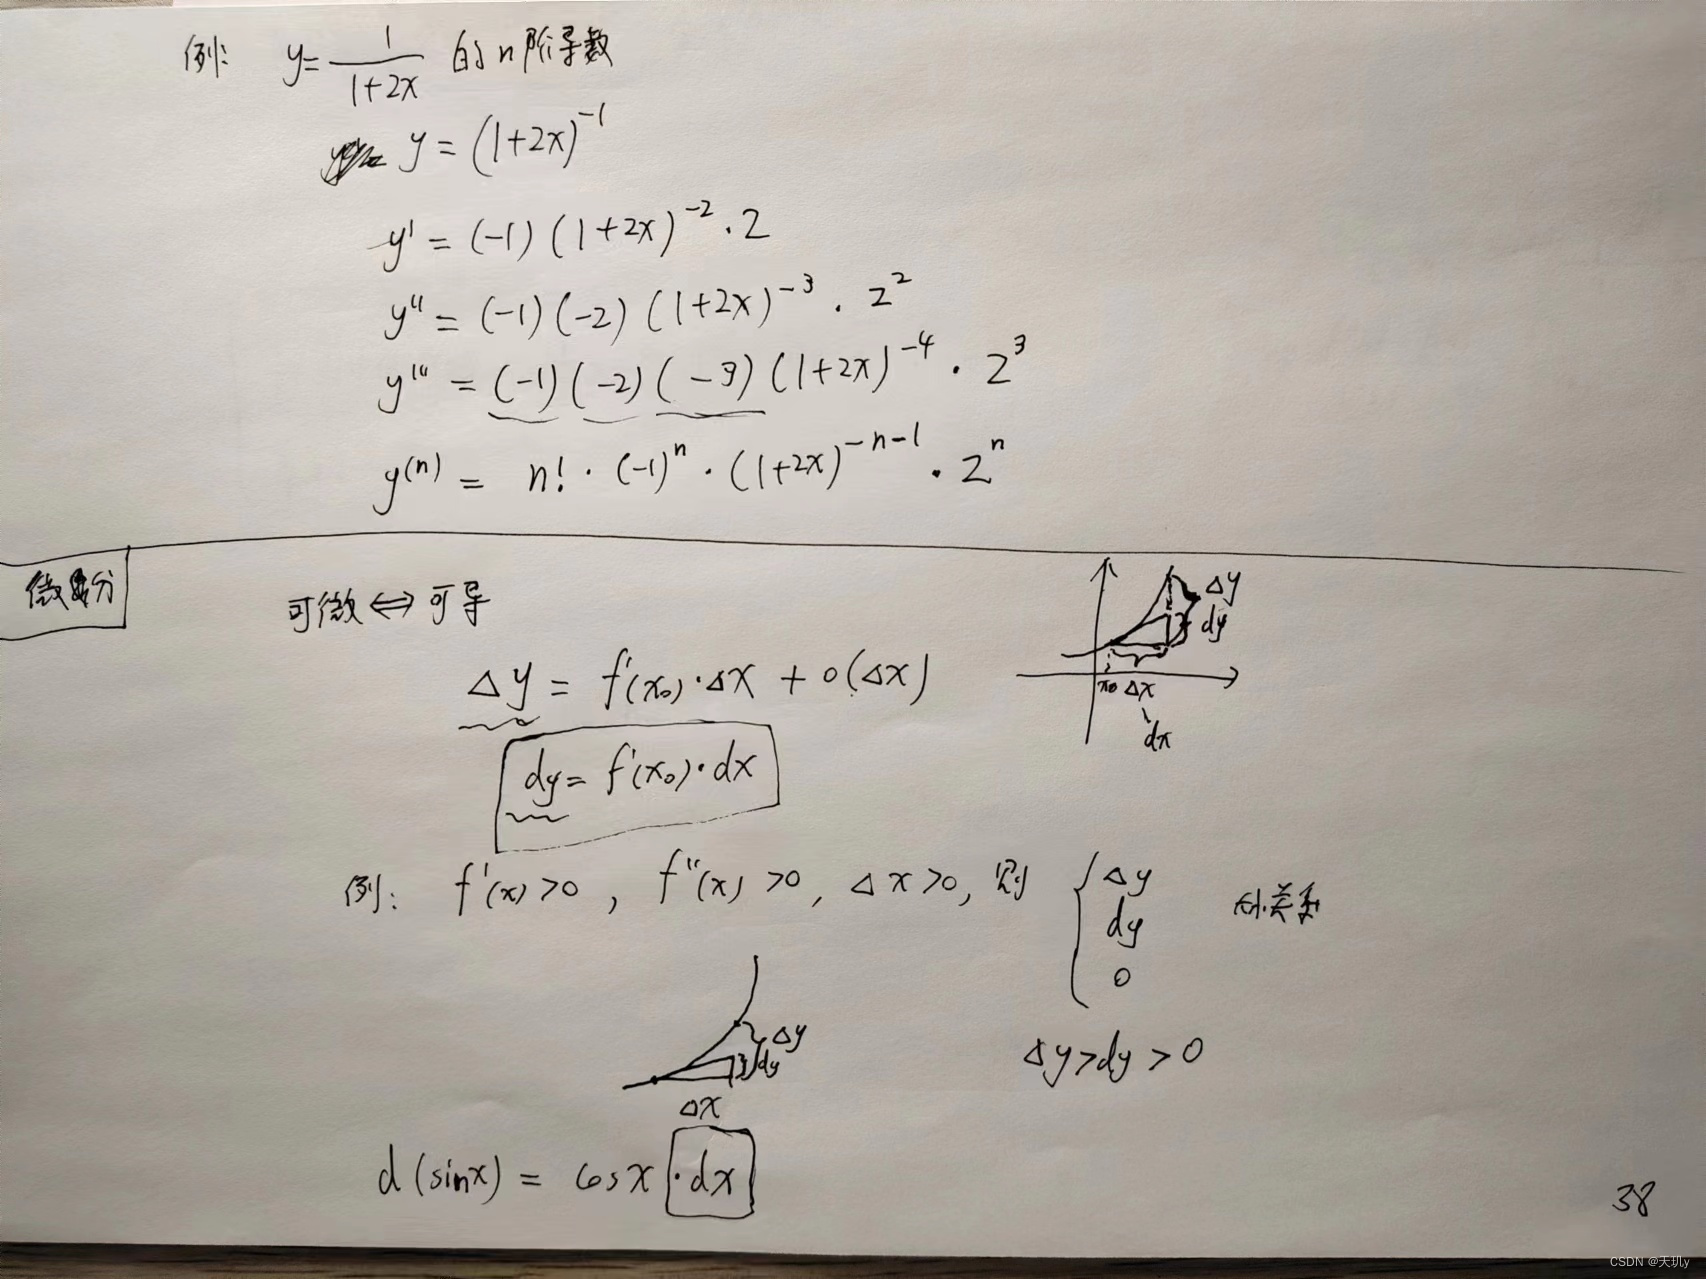 例: y = 1/(1+2x) 的n阶导数
y = (1+2x)^{-1}
y' = (-1)(1+2x)^{-2}·2
y'' = (-1)(-2)(1+2x)^{-3}·2^2
y''' = (-1)(-2)(-3)(1+2x)^{-4}·2^3
y^{(n)} = n!·(-1)^n·(1+2x)^{-n-1}·2^n
微分
可微⇔可导
Δy
dy
x0 Δx
dx
Δy = f'(x0)·Δx + o(Δx)
dy = f'(x0)·dx
例: f'(x)>0, f''(x)>0, Δx>0, 则 { Δy
dy
0
大小关系
Δy
dy
Δx
Δy>dy>0
d(sinx) = cosx·dx
38
CSDN @天玑y